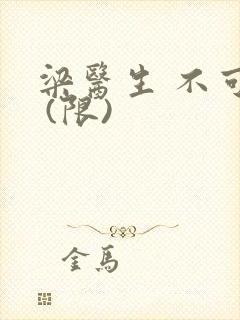 梁醫生 不可
(限)
金馬